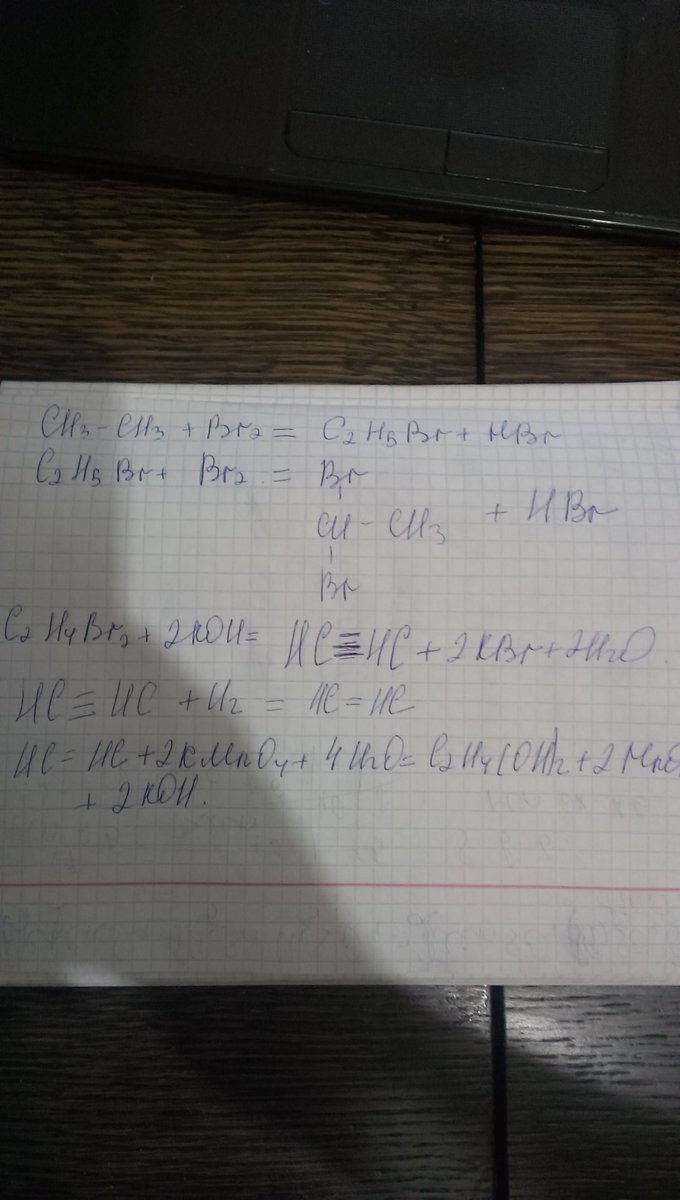 CH3-CH3 + Br2 = C2H5Br + HBr
C2H5Br + Br2 = Br
CH - CH3 + HBr
Br
C2H4Br2 + 2KOH = HC≡HC + 2KBr + 2H2O
HC≡HC + H2 = HC=HC
HC=HC + 2KMnO4 + 4H2O = C2H4(OH)2 + 2MnO
+ 2KOH.